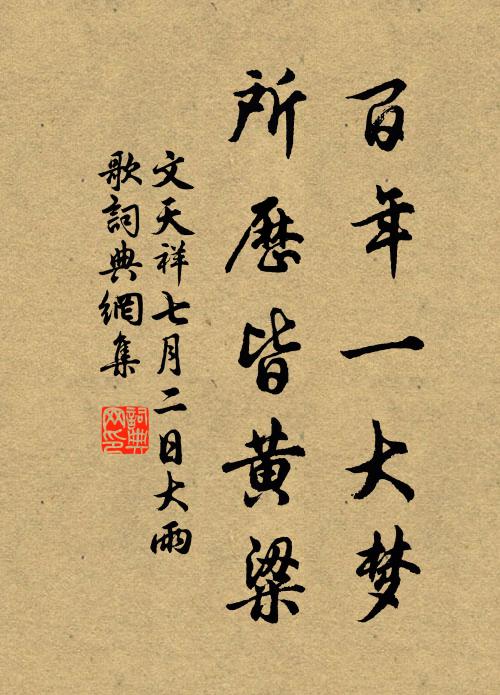 百年一大梦
所歷皆黄粱
文天祥七月二日大雨
歌詞典網集
詞典网印